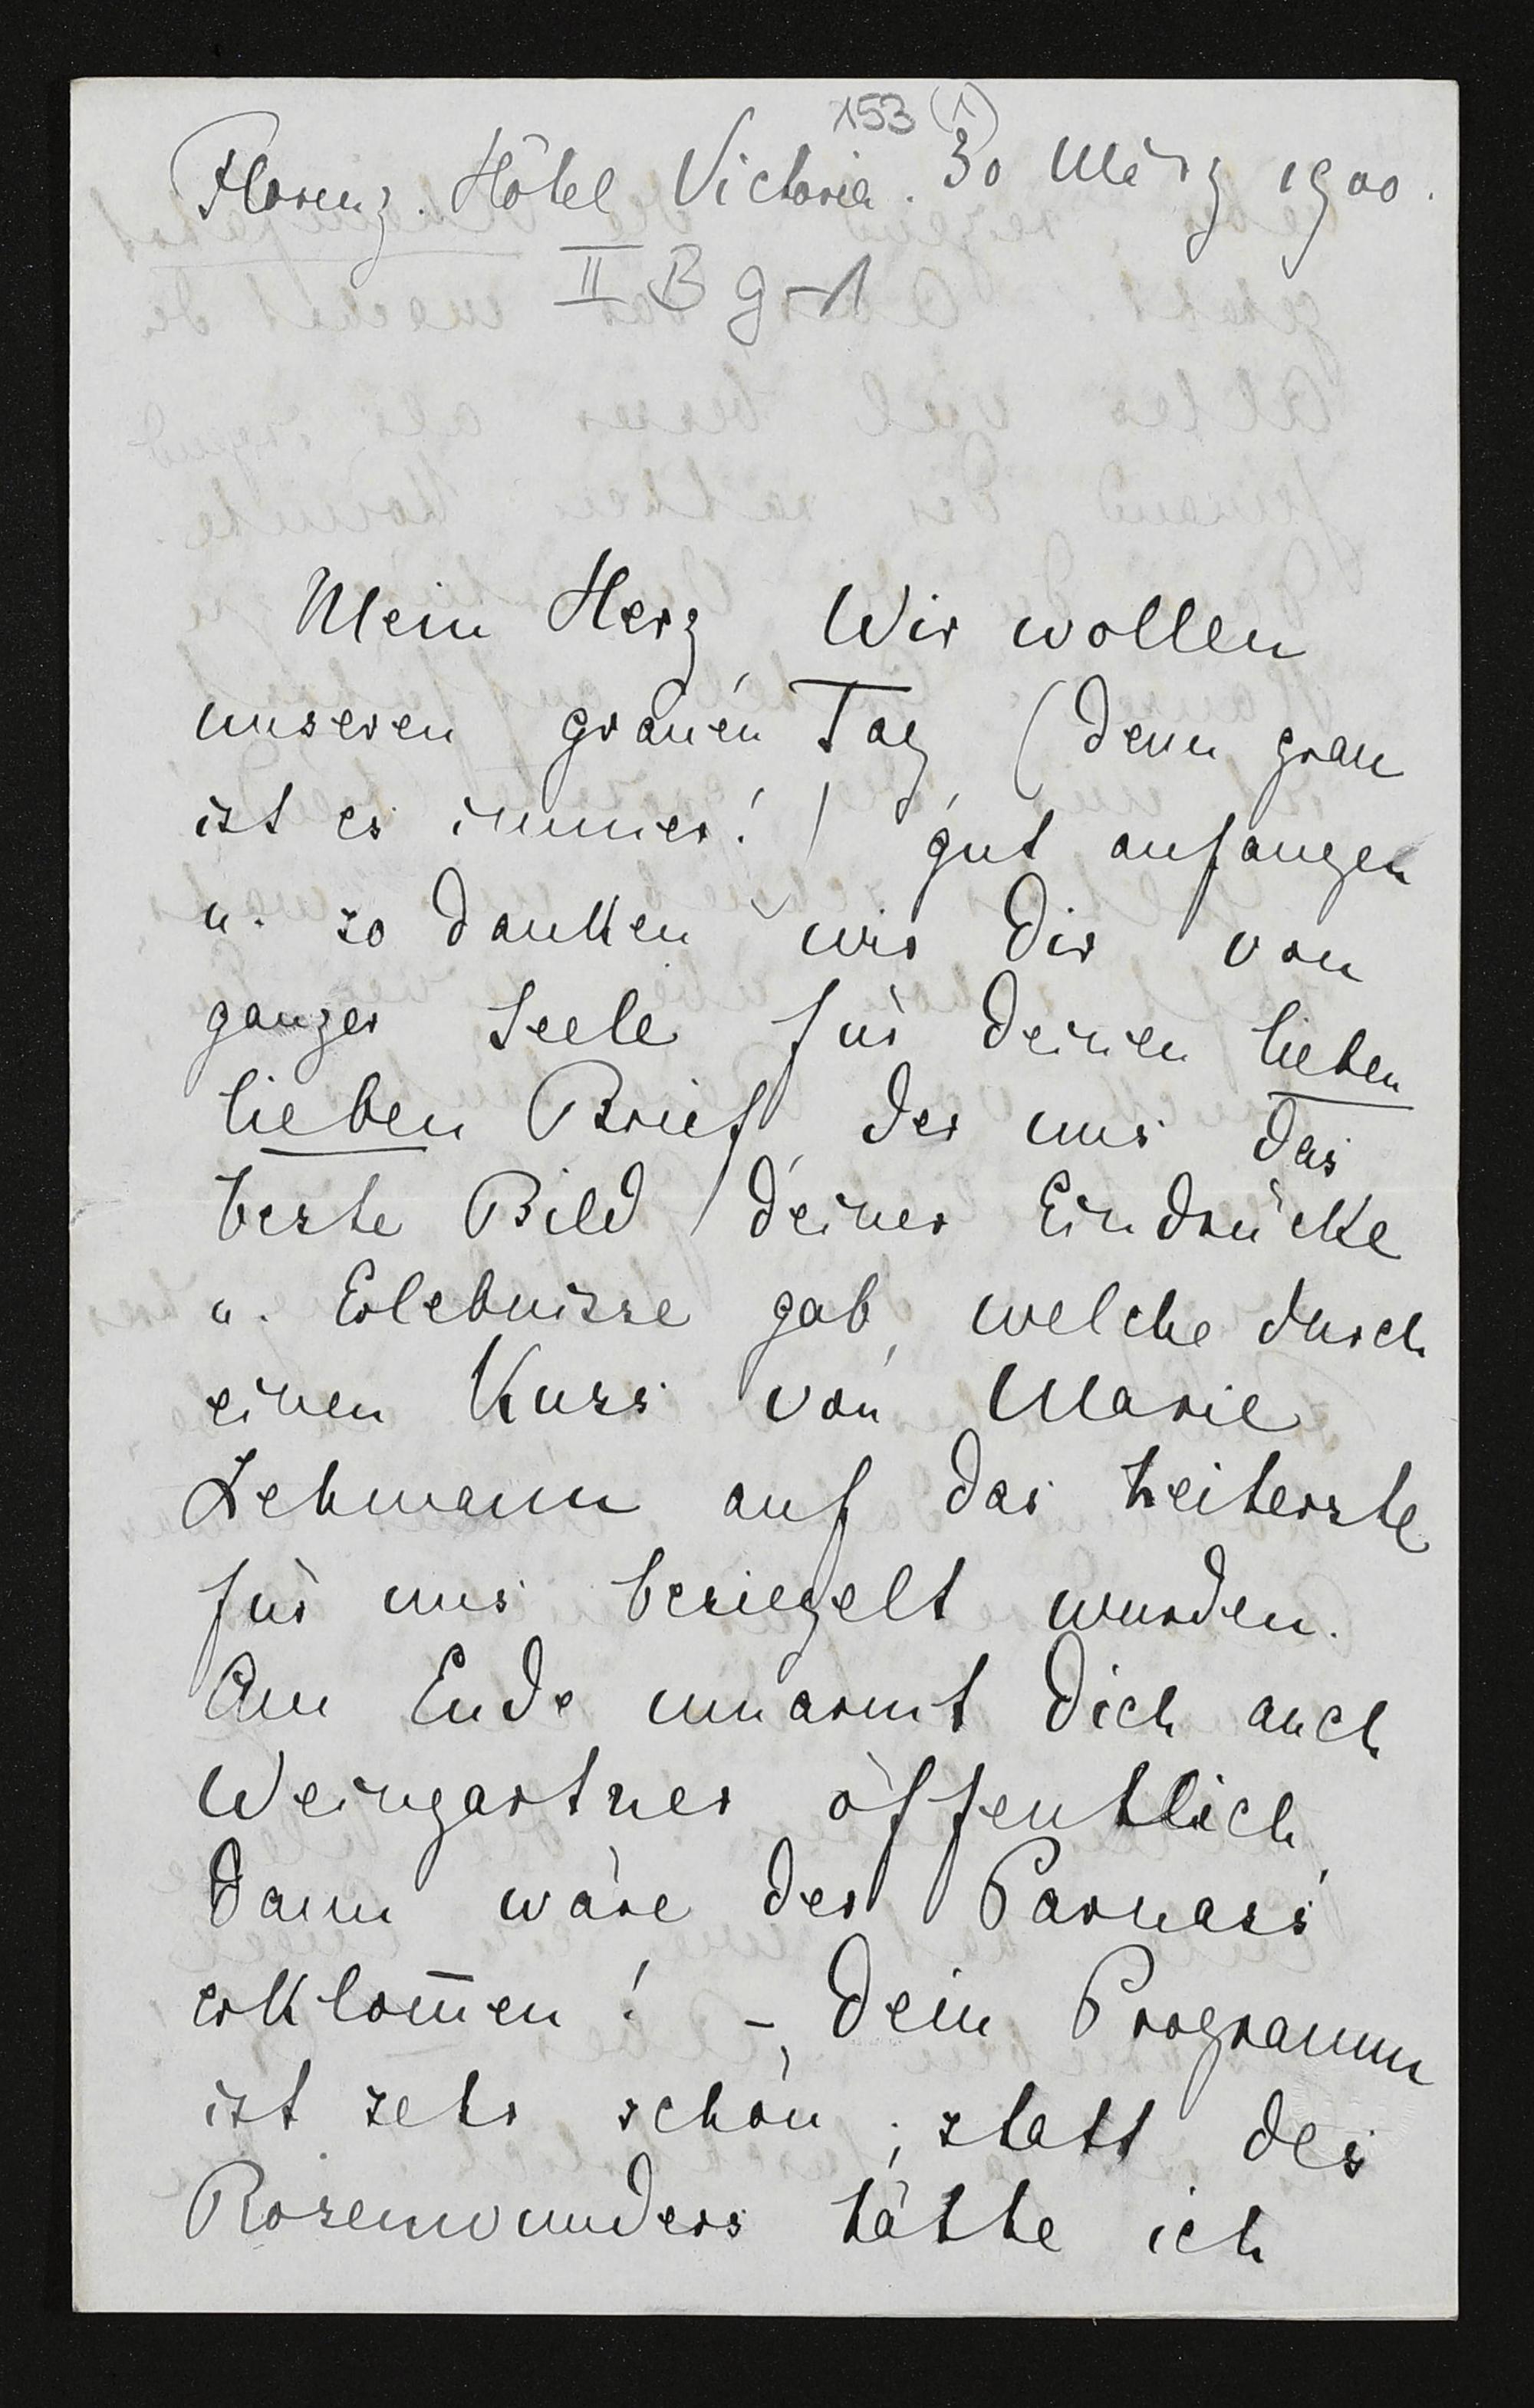 153 (1)
Florenz. Hôtel Victoria. 30 März 1900.
II B g-1
Mein Herz, Wir wollen
unseren grauen Tag (denn grau
ist es immer!) gut anfangen
u. so danken wir Dir von
ganzer Seele für deinen lieben
lieben Brief, der uns das
beste Bild deiner Eindrücke
u. Erlebnisse gab, welche durch
einen Kuss von Marie
Lehmann auf das heiterste
für uns besiegelt wurden.
Am Ende umarmt Dich auch
Weingartner öffentlich,
dann wäre der Parnass
erklom̅en! – Dein Programm
ist sehr schön; statt des
Rosenwunders hätte ich